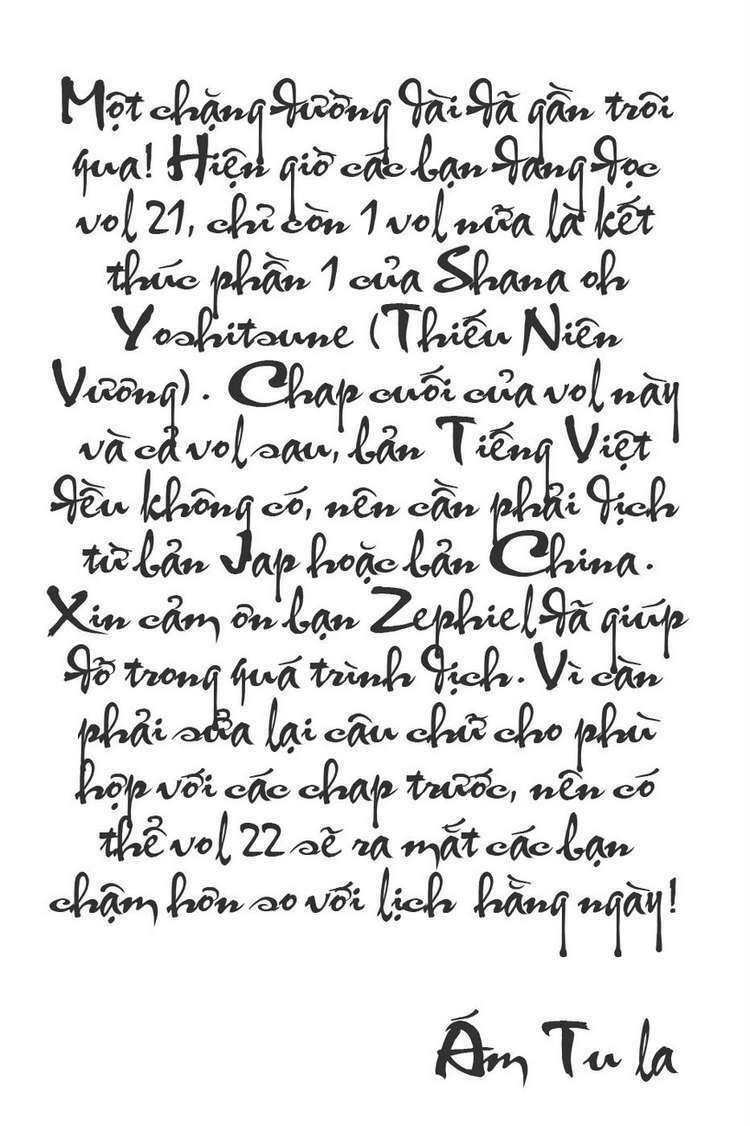 Một chặng đường dài đã gần trôi
qua! Hiện giờ các bạn đang đọc
vol 21, chỉ còn 1 vol nữa là kết
thúc phần 1 của Shana oh
Yoshitsune (Thiếu Niên
Vương). Chap cuối của vol này
và cả vol sau, bản Tiếng Việt
đều không có, nên cần phải dịch
từ bản Jap hoặc bản China.
Xin cảm ơn bạn Zephiel đã giúp
đỡ trong quá trình dịch. Vì cần
phải sửa lại câu chữ cho phù
hợp với các chap trước, nên có
thể vol 22 sẽ ra mắt các bạn
chậm hơn so với lịch hằng ngày!
Ám Tu la